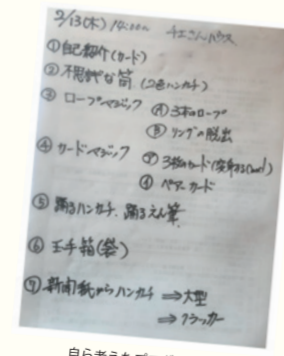 2/13(木) 14:00〜 チエさんハウス
① 自己紹介(カード)
② 不思議な筒 (2色ハンカチ)
③ ロープマジック Ⓐ 3本のロープ
Ⓑ リングの脱出
④ カードマジック ⑦ 3枚のカード
④ ペアーカード
⑤ 踊るハンカチ、踊るえん筆
⑥ 玉手箱(袋)
⑦ 新聞紙からハンカチ ⇒ 大型
⇒ クラッカー
自ら考えた